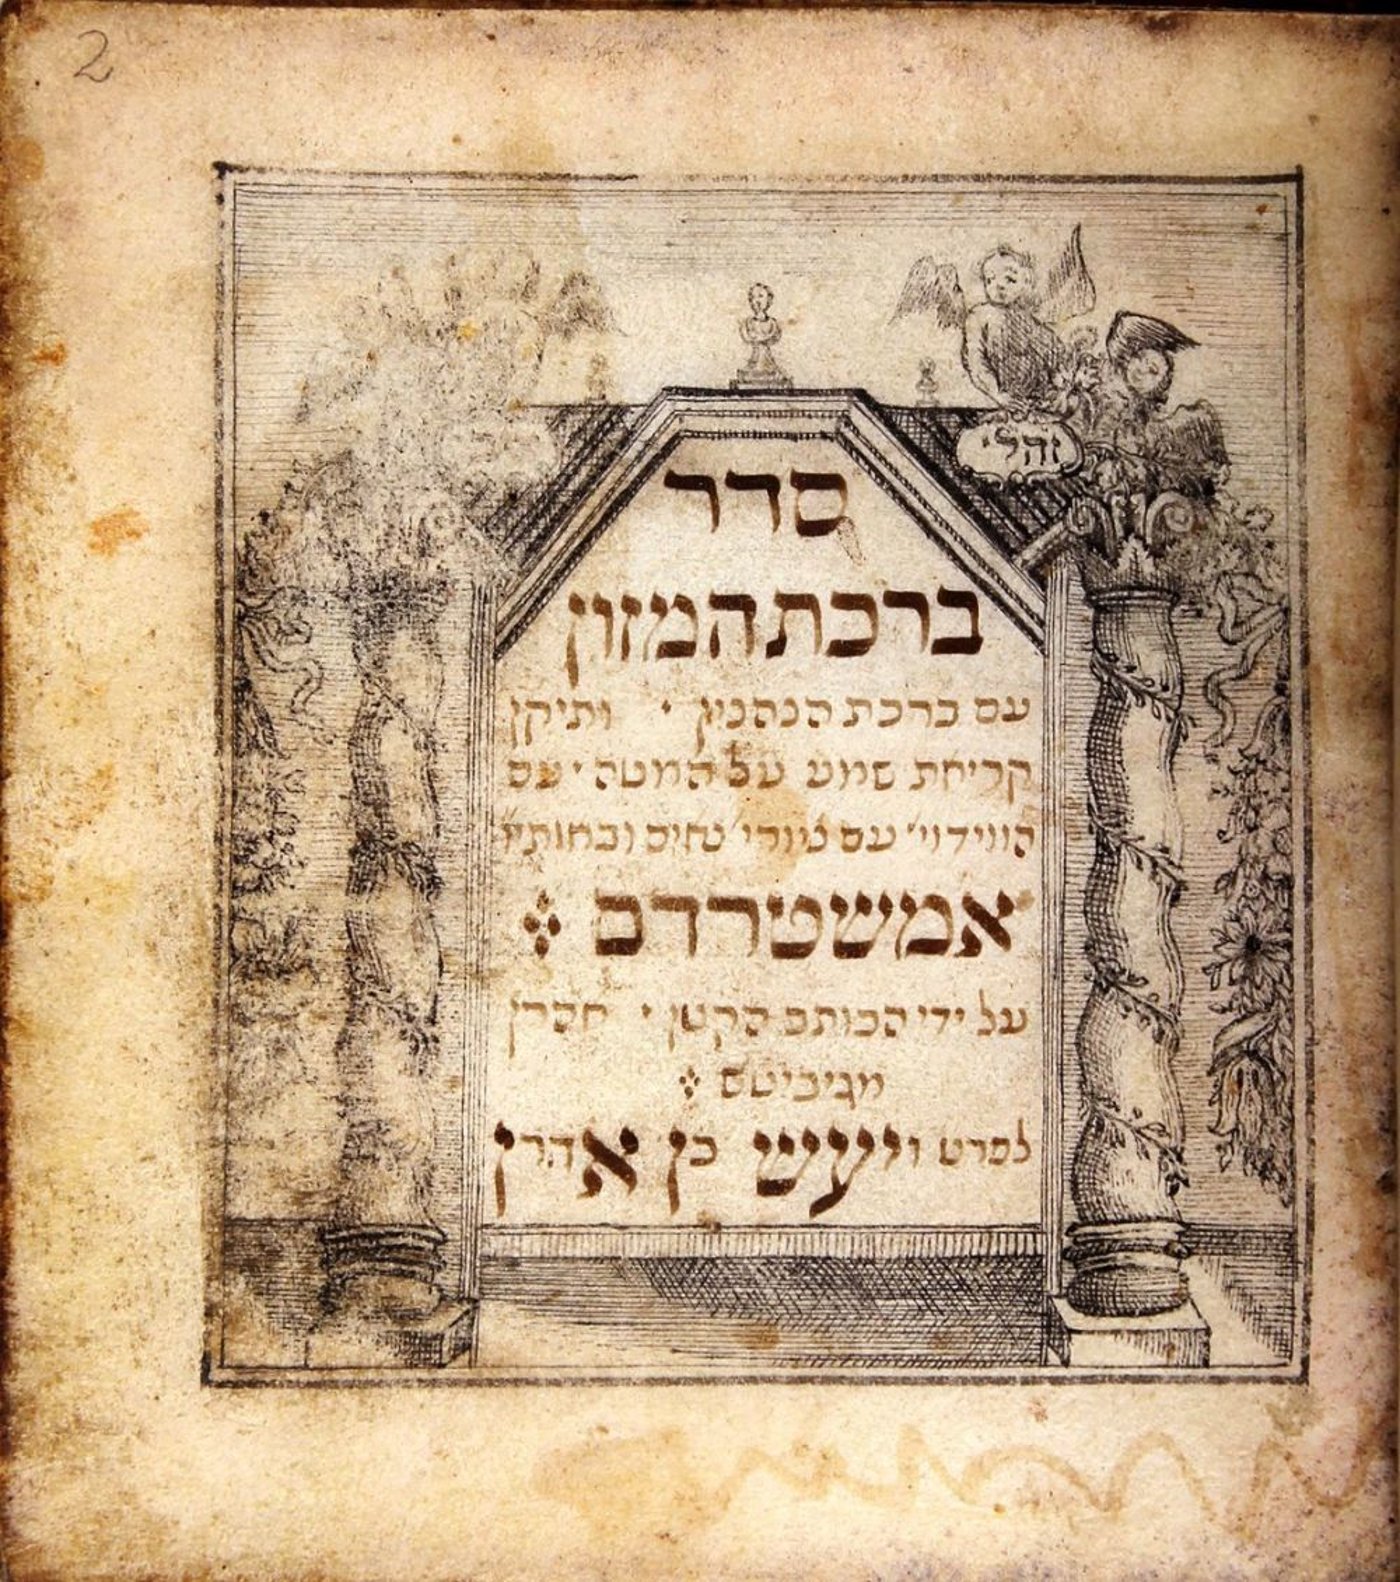 2
זהלי
סדר
ברכת המזון
עם ברכת הנהנין ותיקן
קריאת שמע על המטה עם
הווידוי עם ציורי נאים ובאותיו׳
אמשטרדם
על ידי הכותב הקטן אהרן
מגיביטש
לפרט ויעש כן אהרן